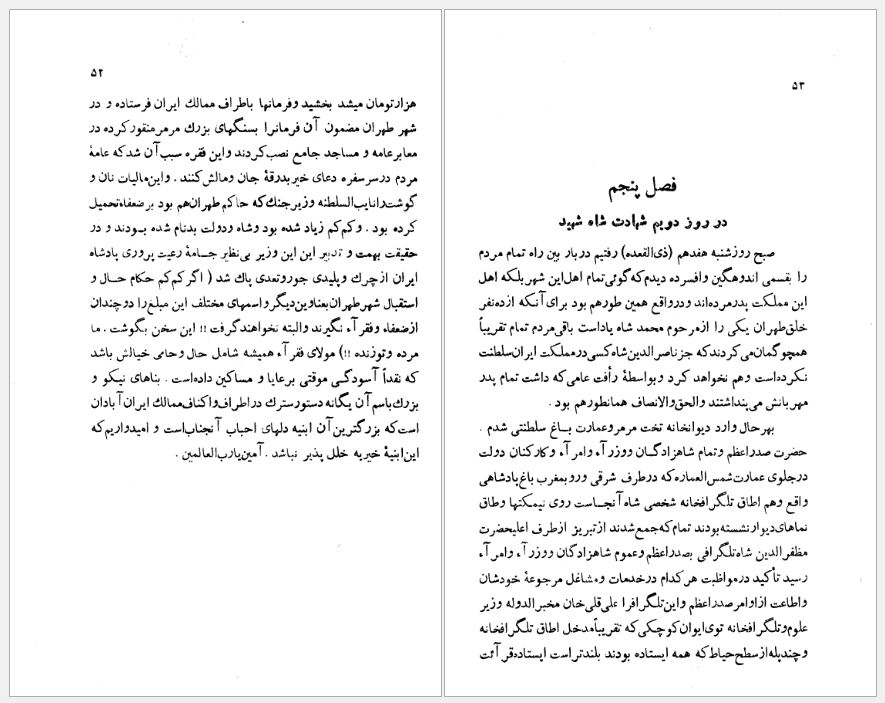 ۵۲
هزارتومان میشد بخشید وفرمانها باطراف ممالك ایران فرستاده و در
شهر طهران مضمون آن فرمانرا بسنگهای بزرك مرمرمنقورکرده در
معابرعامه و مساجد جامع نصب‌کردند واین فقره سبب‌آن شدکه عامهٔ
مردم درسرسفره دعای خیربدرقهٔ جان ومالش‌کنند . واین‌مالیات نان و
گوشت‌رانایب‌السلطنه وزیرجنك‌که حاکم طهران‌هم بود برضعفاءتحمیل
کرده بود . وکم‌کم زیاد شده بود وشاه ودولت بدنام شده بـودند و در
حقیقت بهمت و تدبیر این این وزیر بی‌نظیر جـامهٔ رعیت پروری پادشاه
ایران ازچرك وپلیدی جوروتعدی پاك شد ( اگرکم‌کم حکام حـال و
استقبال شهرطهران‌بعناوین‌دیگر واسمهای مختلف این مبلغ‌را دوچندان
ازضعفاء وفقرآء نگیرند والبته نخواهندگرفت !! این سخن بگوشت . ما
مرده وتوزنده !!) مولای فقرآء همیشه شامل حال وحامی خیالش باشد
که نقداً آسودگـی موقتی برعایا و مساکین داده‌است . بناهای نیکو و
بزرك‌باسم‌آن یگانه دستورسترك دراطراف‌واکناف‌ممالك ایران‌آبادان
است‌که بزرگترین‌آن ابنیه دلهای احباب آنجناب‌است و امیدواریم‌که
این‌ابنیهٔ خیریه خلل پذیر نباشد . آمین‌یارب‌العالمین .
۵۳
فصل پنجم
در روز دویم شهادت شاه شهید
صبح روزشنبه هفدهم (ذی‌القعده) رفتیم دربار بین راه تمام مردم
را بقسمی اندوهگین وافسرده دیدم‌که‌گوئی‌تمام اهل‌این شهربلکه اهل
این مملکت پدرمرده‌اند ودرواقع همین طورهم بود برای‌آنـکه ازده‌نفر
خلق‌طهران یکی را ازمرحوم محمد شاه یاداست باقی‌مردم تمام تقریباً
همچوگمان‌می‌کردندکه جزناصرالدین‌شاه‌کسی‌درمملکت ایران‌سلطنت
نکرده‌است وهم نخواهد کرد و بواسطهٔ رأفت عامی‌که داشت تمام پدر
مهربانش می‌پنداشتند والحق‌والانصاف همانطورهم بود .
بهرحال وارد دیوانخانه تخت مرمروعمارت بـاغ سلطنتی شدم .
حضرت صدراعظم وتمام شاهزادگـان ووزرآء وامرآء وکارکنان دولت
درجلوی عمارت‌شمس‌العماره‌که درطرف شرقی وروبمغرب باغ‌پادشاهی
واقع وهم اطاق تلگرافخانه شخصی شاه‌آنجـاست روی نیمکتها وطاق
نماهای‌دیوارنشسته‌بودند تمام‌که‌جمع‌شدند ازتبریز ازطرف اعلیحضرت
مظفرالدین شاه‌تلگرافی بصدراعظم وعموم شاهزادگان ووزرآء وامرآء
رسید تأکید درمواظبت هرکدام درخدمات ومشاغل مرجوعهٔ خودشان
واطاعت ازاوامرصدراعظم واین‌تلگرافرا علی‌قلی‌خان مخبرالدوله وزیر
علوم‌وتلگرافخانه توی‌ایوان‌کوچکی‌که تقریباًمدخل اطاق تلگرافخانه
وچندپله‌ازسطح‌حیاط‌که همه ایستاده بودند بلندتراست ایستاده‌قرآئت